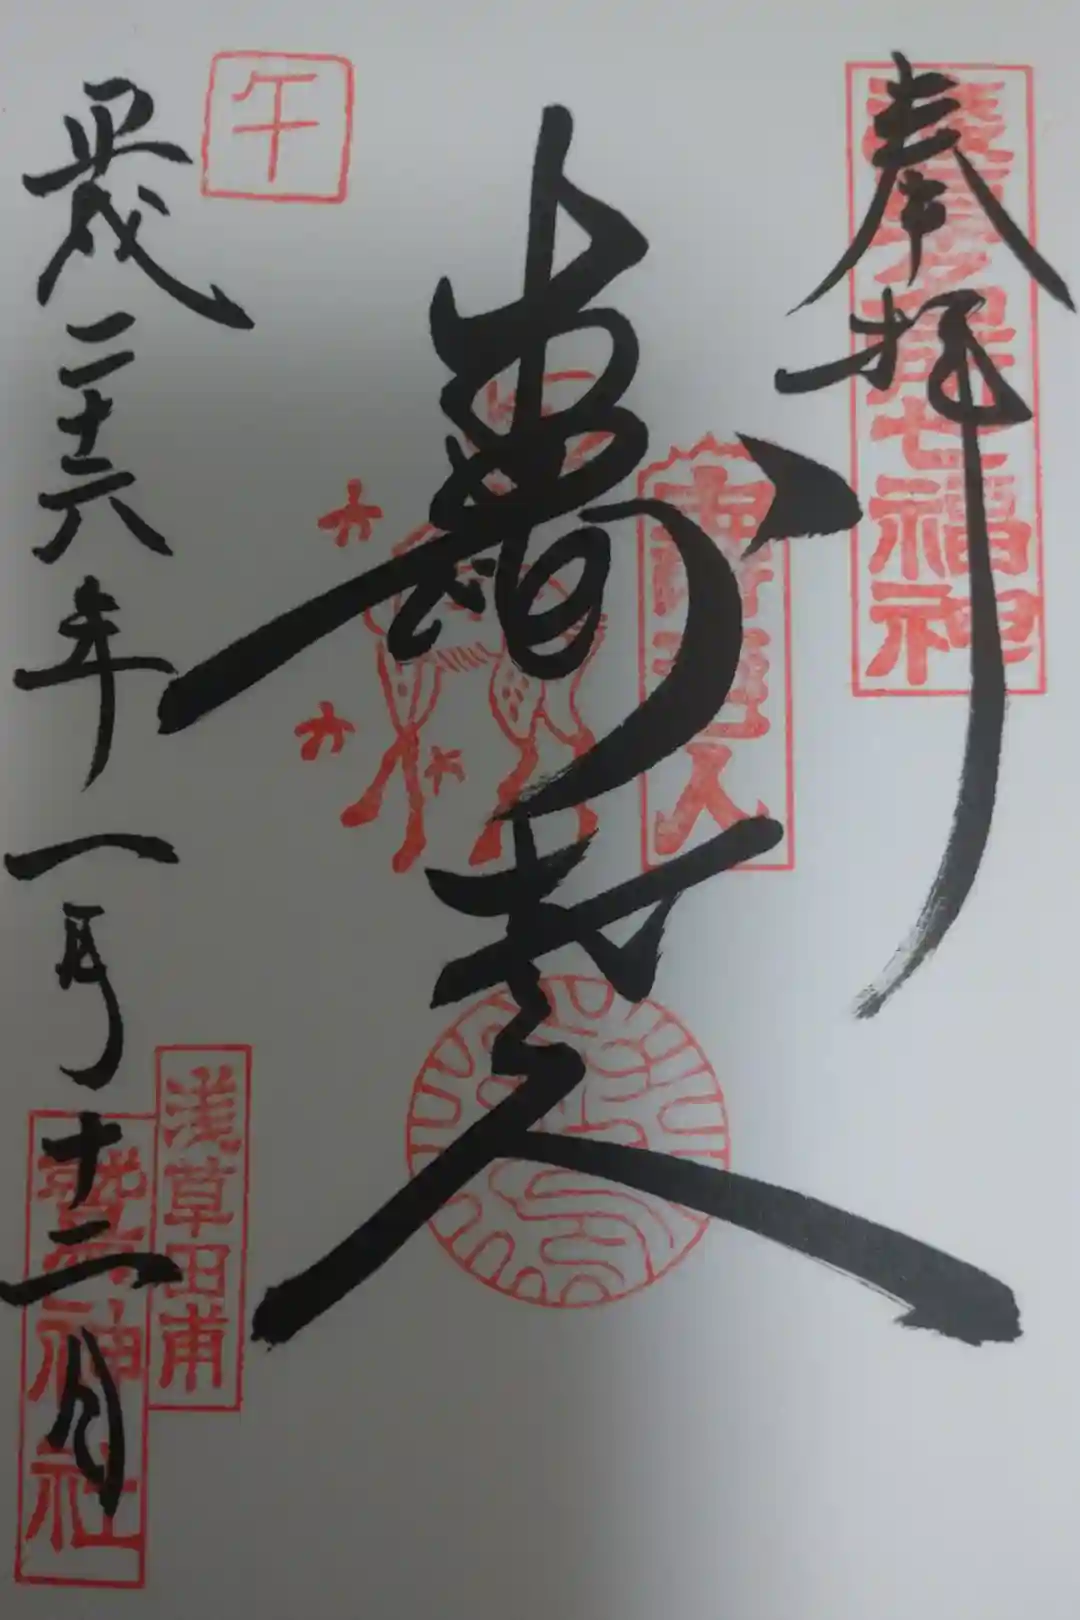 奉拝
浅草名所七福神
壽老人
壽老人
午
平成二十六年一月十二日
浅草田甫
鷲神社